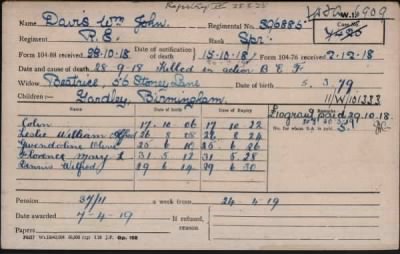 W.1
Name Davis Wm John. Regimental No. 306885
Regiment R.E. Rank Spr.
Form 104-88 received 28.10.18 Date of notification of death 15.10.18 Form 104-76 received 2.12.18
Date and cause of death 28-9-18 Killed in action B E F
Widow Beatrice, 56 Stoney Lane Date of birth 5.3.79
Children: Yardley, Birmingham. 11/W/101333
£ograty paid 29.10.18
No. for whom S.A. is paid 5.
Colin 17 10 06 17 10 22
Leslie William Alfred 26 8 08 26 8 24
Gwendoline Olive 25 6 10 25 6 26
Florence Mary L 31 5 12 31 5 28
Dennis Wilfred 29 6 14 29 6 30
Pension 37/11 a week from 24-4-19
Date awarded 7-4-19 If refused, reason
Papers